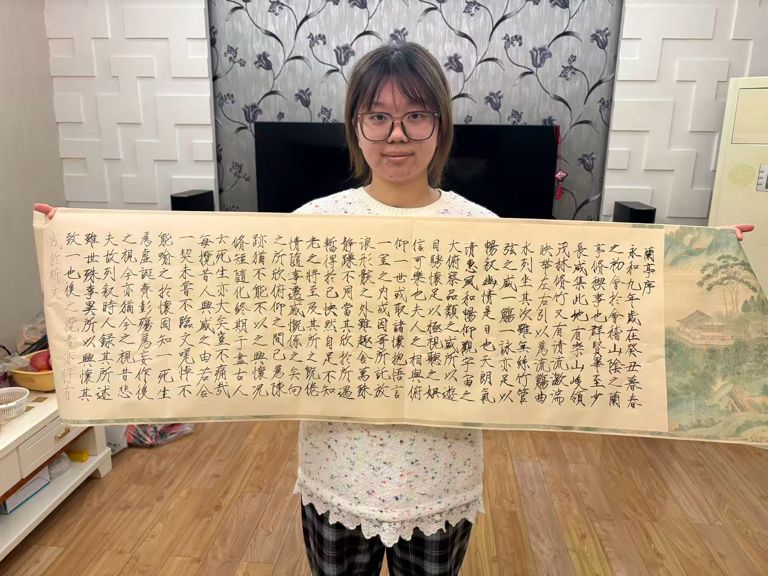 蘭亭序
永和九年歲在癸丑暮春
之初會於會稽山陰之蘭
亭脩禊事也群賢畢至少
長咸集此地有崇山峻領
茂林脩竹又有清流激湍
映帶左右引以為流觴曲
水列坐其次雖無絲竹管
弦之盛一觴一詠亦足以
暢敘幽情是日也天朗氣
清惠風和暢仰觀宇宙之
大俯察品類之盛所以遊
目騁懷足以極視聽之娛
信可樂也夫人之相與俯
仰一世或取諸懷抱悟言
一室之內或因寄所託放
浪形骸之外雖趣舍萬殊
靜躁不同當其欣於所遇
暫得於己快然自足不知
老之將至及其所之既倦
情隨事遷感慨係之矣向
之所欣俯仰之間已為陳
跡猶不能不以之興懷況
脩短隨化終期于盡古人
云死生亦大矣豈不痛哉
每攬昔人興感之由若合
一契未嘗不臨文嗟悼不
能喻之於懷固知一死生
為虛誕齊彭殤為妄作後
之視今亦猶今之視昔悲
夫故列敘時人錄其所述
雖世殊事異所以興懷其
致一也後攬者亦將有
感於斯文